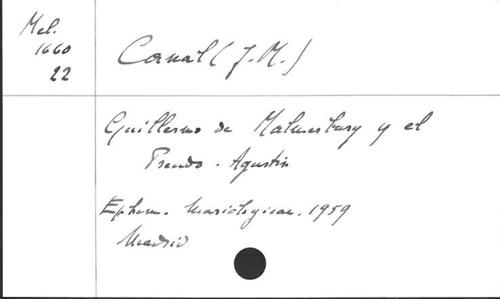 Mel.
1660
22
Canal (J. M.)
Guillermo de Malmesbury y el
Pseudo. Agustin
Ephem. Mariologicae. 1959
Madrid